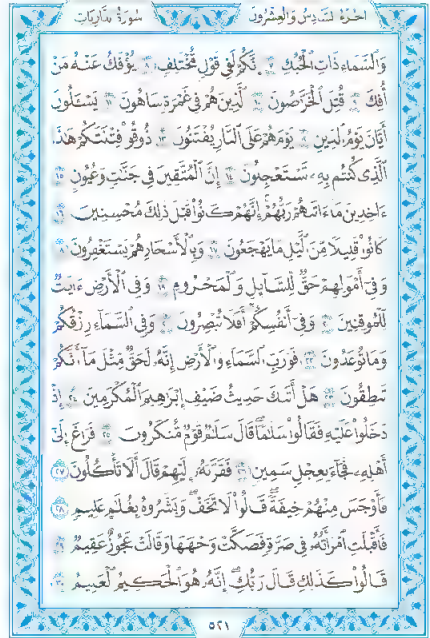 الجزء السادس والعشرون سورة الذاريات
والسماء ذات الحبك ٧ إنكم لفي قول مختلف ٨ يؤفك عنه من
أفك ٩ قتل الخراصون ١٠ الذين هم في غمرة ساهون ١١ يسئلون
أيان يوم الدين ١٢ يوم هم على النار يفتنون ١٣ ذوقوا فتنتكم هذا
الذي كنتم به تستعجلون ١٤ إن المتقين في جنت وعيون ١٥
ءاخذين ما ءاتهم ربهم إنهم كانوا قبل ذلك محسنين ١٦
كانوا قليلا من اليل ما يهجعون ١٧ وبالأسحار هم يستغفرون ١٨
وفي أمولهم حق للسائل والمحروم ١٩ وفي الأرض ءايت
للموقنين ٢٠ وفي أنفسكم أفلا تبصرون ٢١ وفي السماء رزقكم
وما توعدون ٢٢ فورب السماء والأرض إنه لحق مثل ما أنكم
تنطقون ٢٣ هل أتىك حديث ضيف إبرهيم المكرمين ٢٤ إذ
دخلوا عليه فقالوا سلما قال سلم قوم منكرون ٢٥ فراغ إلى
أهله فجاء بعجل سمين ٢٦ فقربه إليهم قال ألا تأكلون ٢٧
فأوجس منهم خيفة قالوا لا تخف وبشروه بغلم عليم ٢٨
فأقبلت امرأته في صرة فصكت وجهها وقالت عجوز عقيم ٢٩
قالوا كذلك قال ربك إنه هو الحكيم العليم ٣٠
٥٢١